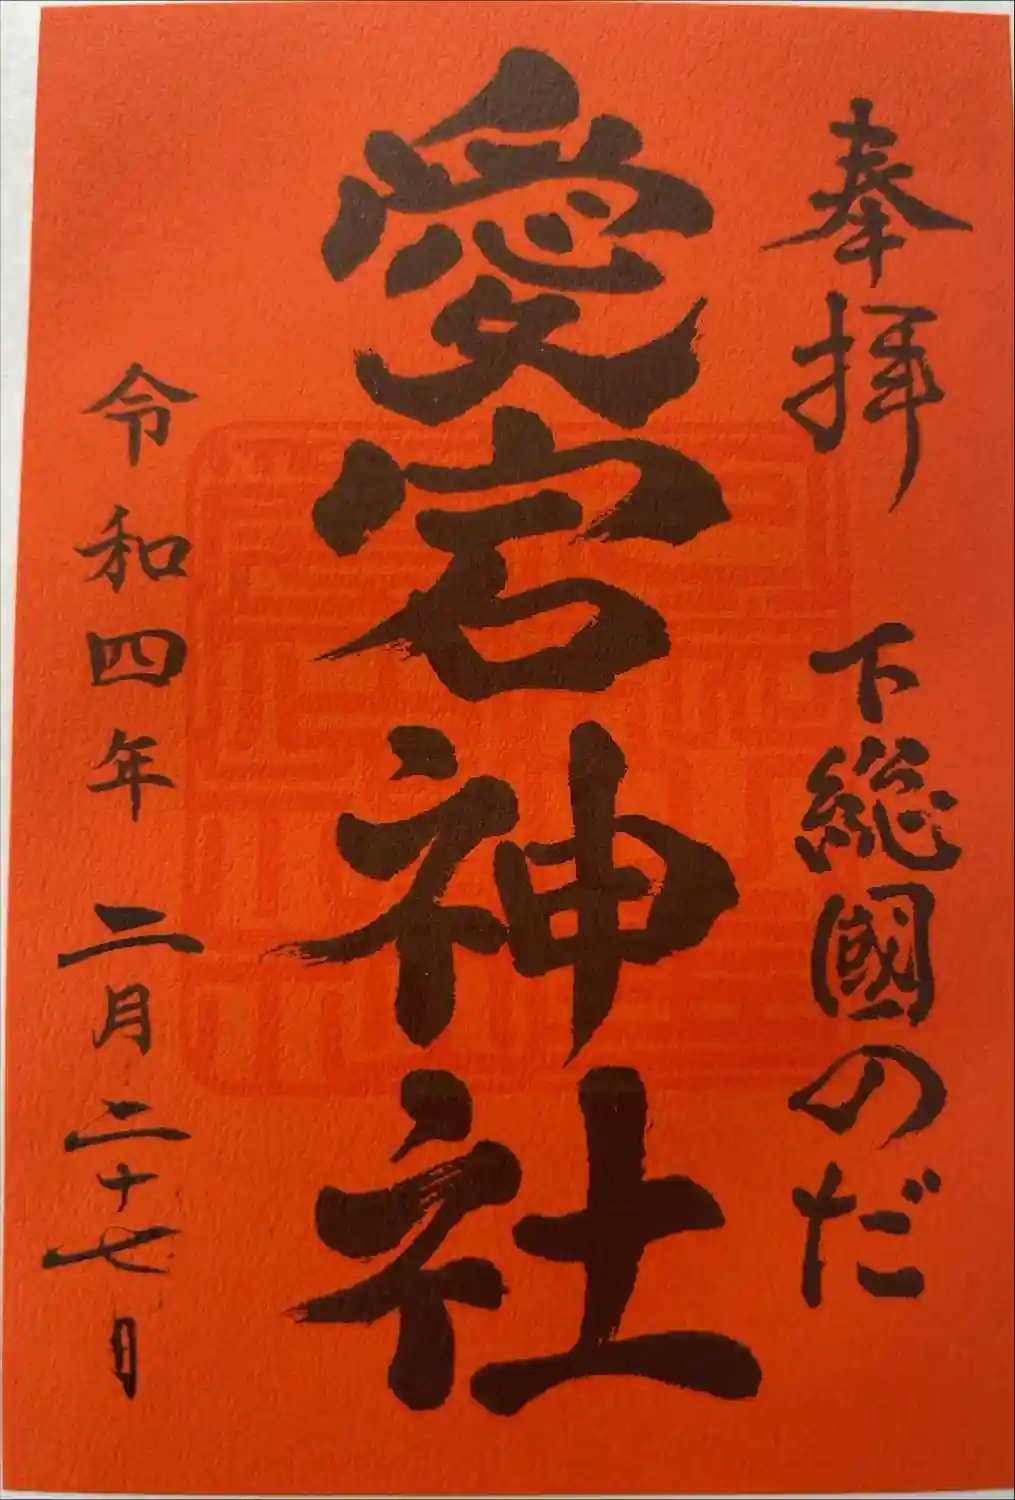 奉拝 下総國のだ
愛宕神社
令和四年 二月二十七日